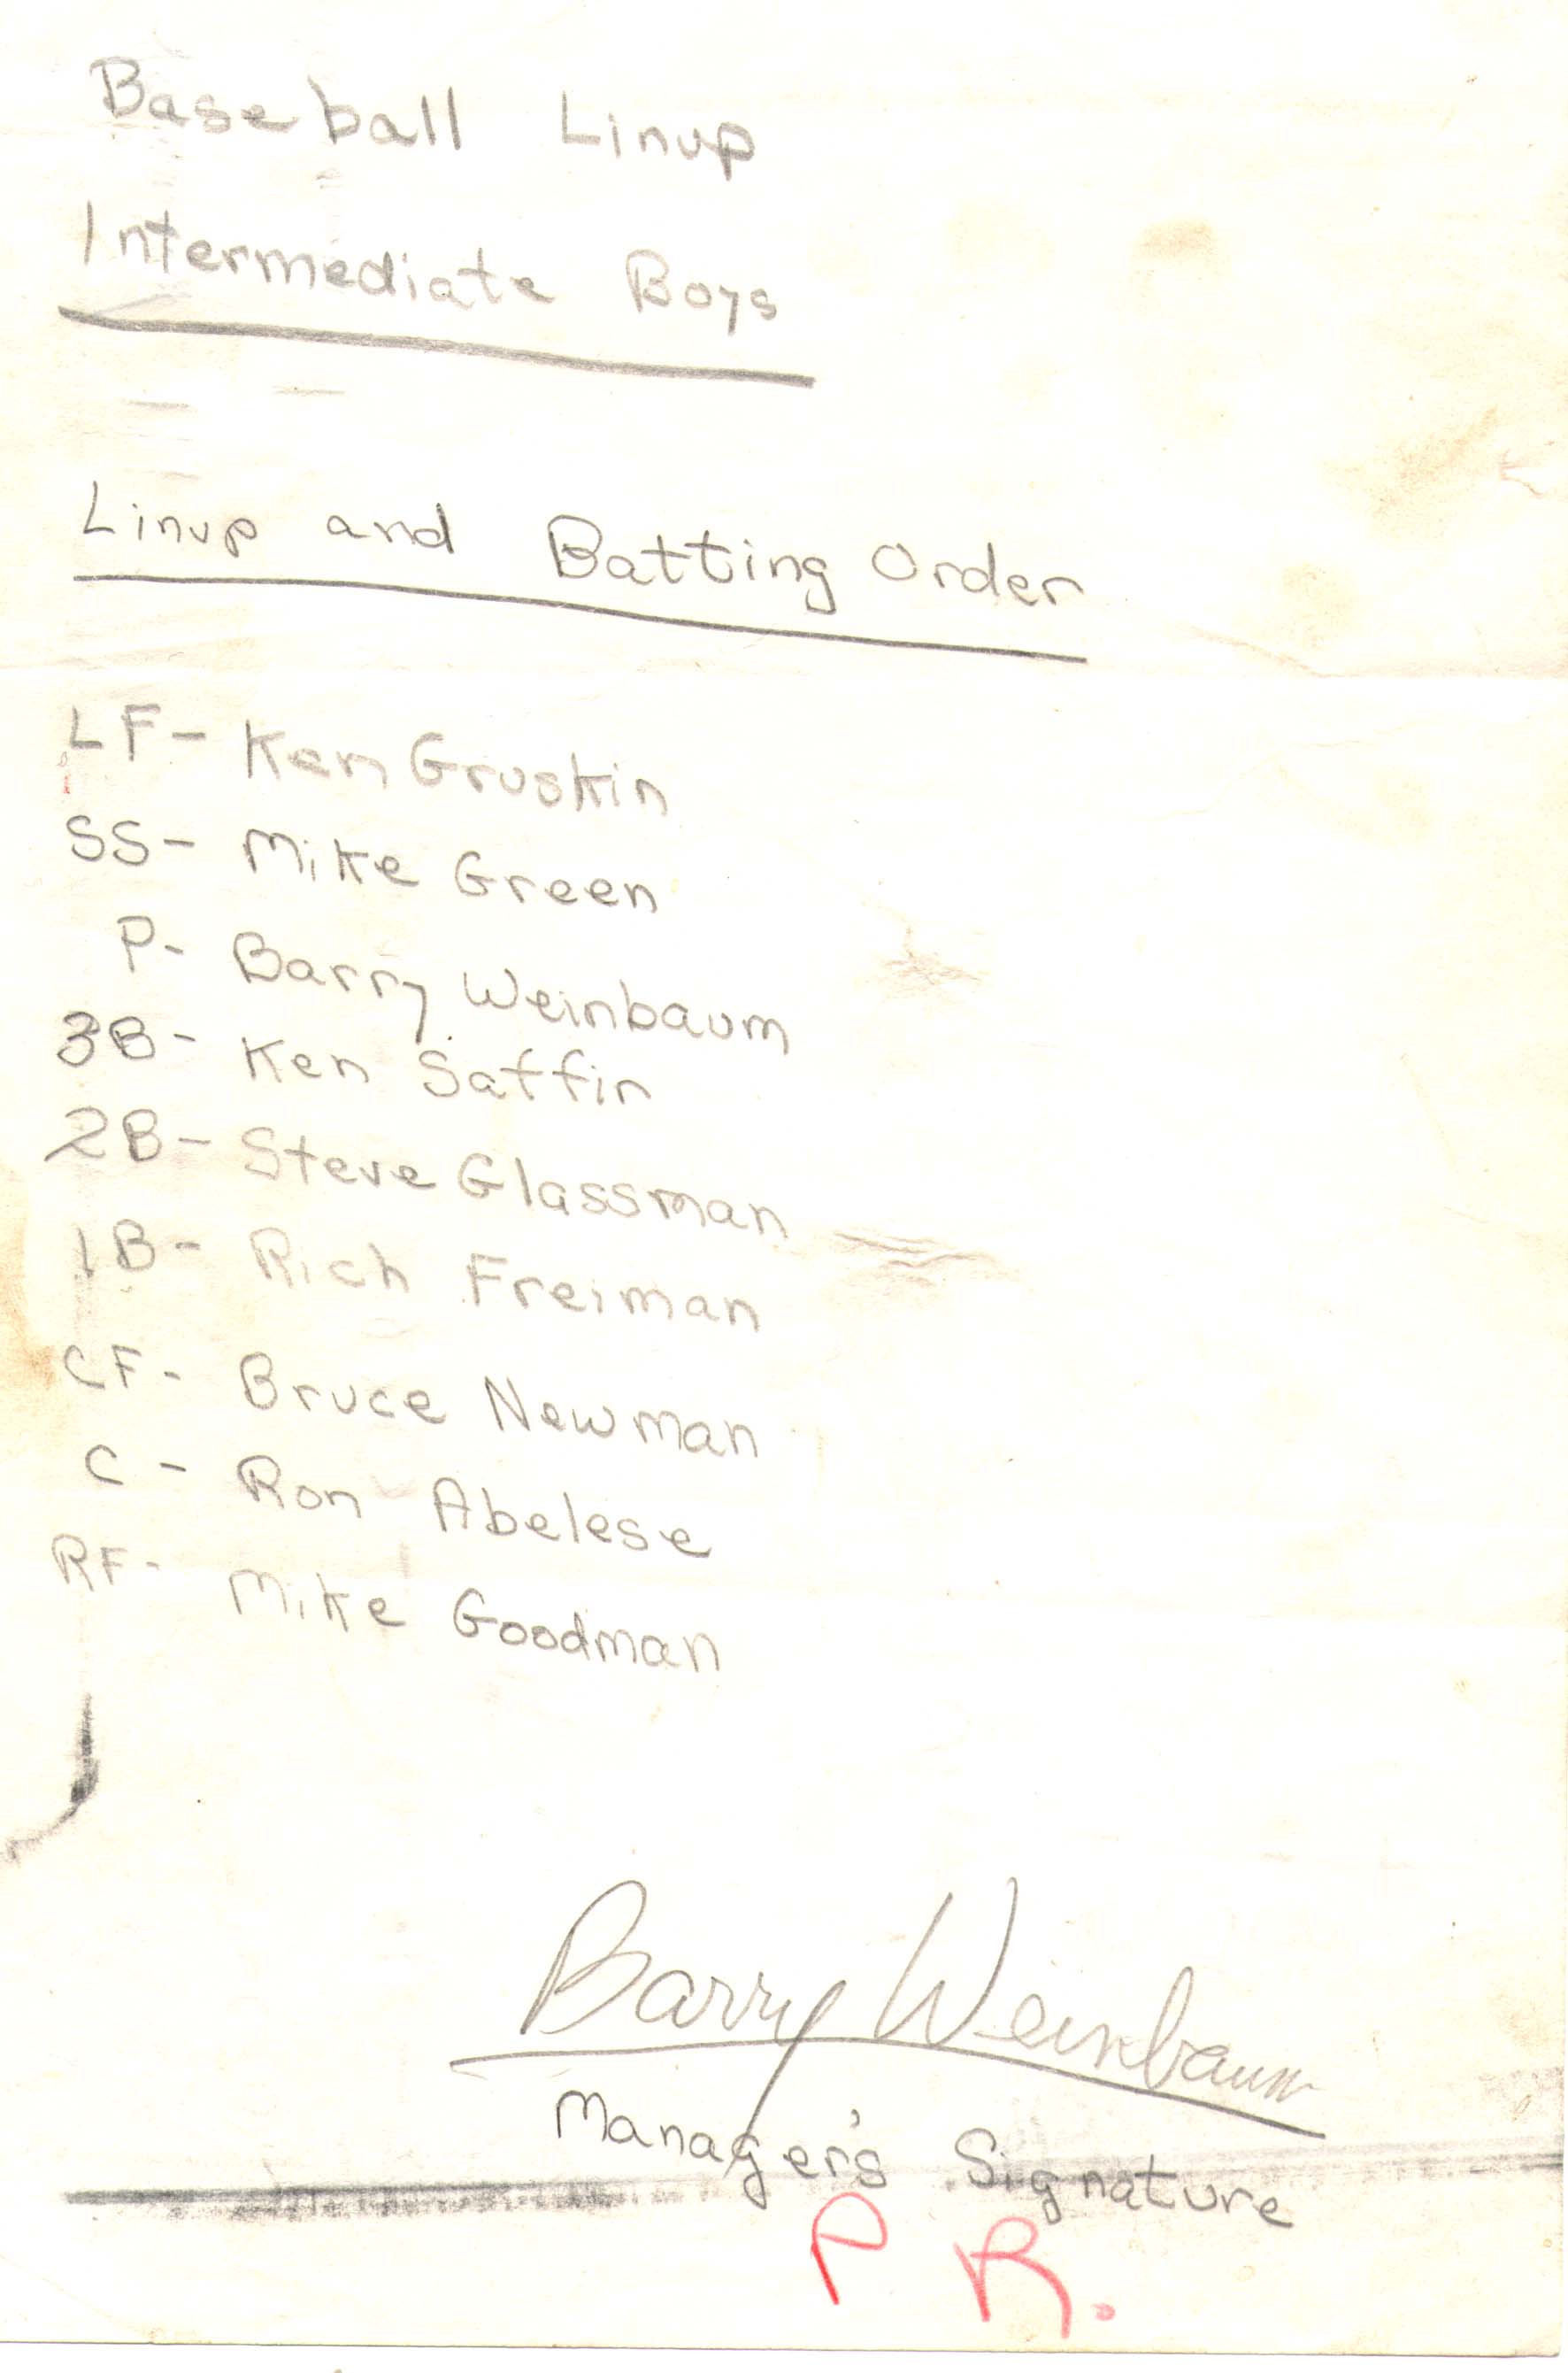 Baseball Linup
Intermediate Boys
Linup and Batting Order
LF- Ken Gruskin
SS- Mike Green
P- Barry Weinbaum
3B- Ken Saffin
2B- Steve Glassman
1B- Rich Freiman
CF- Bruce Newman
C - Ron Abelese
RF- Mike Goodman
Barry Weinbaum
Manager's Signature
P R.